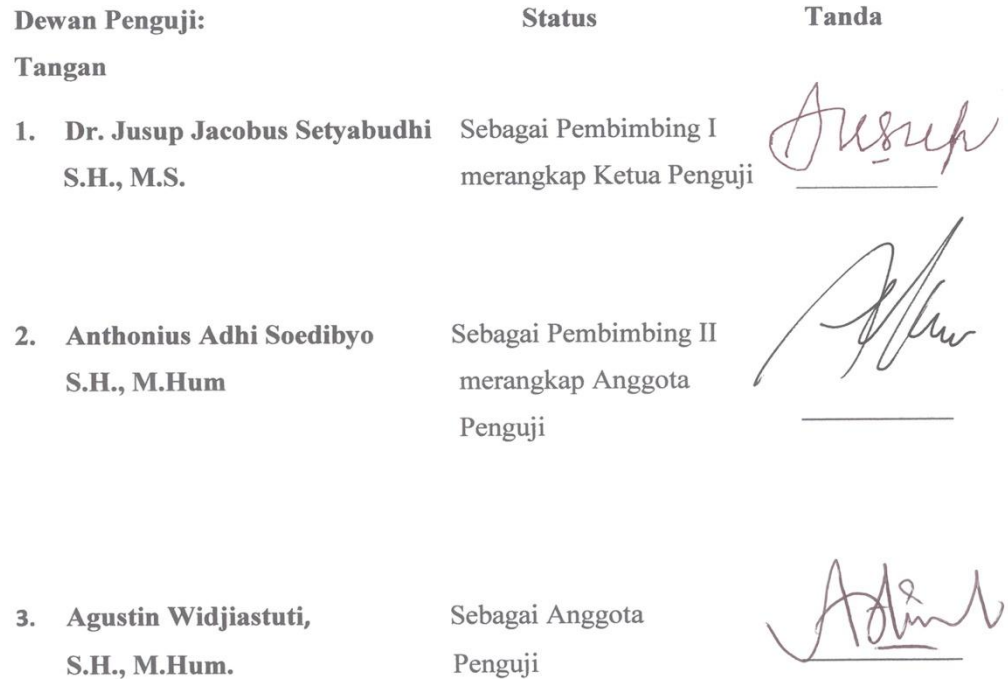 Dewan Penguji: Status Tanda
Tangan
1. Dr. Jusup Jacobus Setyabudhi Sebagai Pembimbing I
S.H., M.S. merangkap Ketua Penguji
Jusup
2. Anthonius Adhi Soedibyo Sebagai Pembimbing II
S.H., M.Hum merangkap Anggota
Penguji
3. Agustin Widjiastuti, Sebagai Anggota
S.H., M.Hum. Penguji